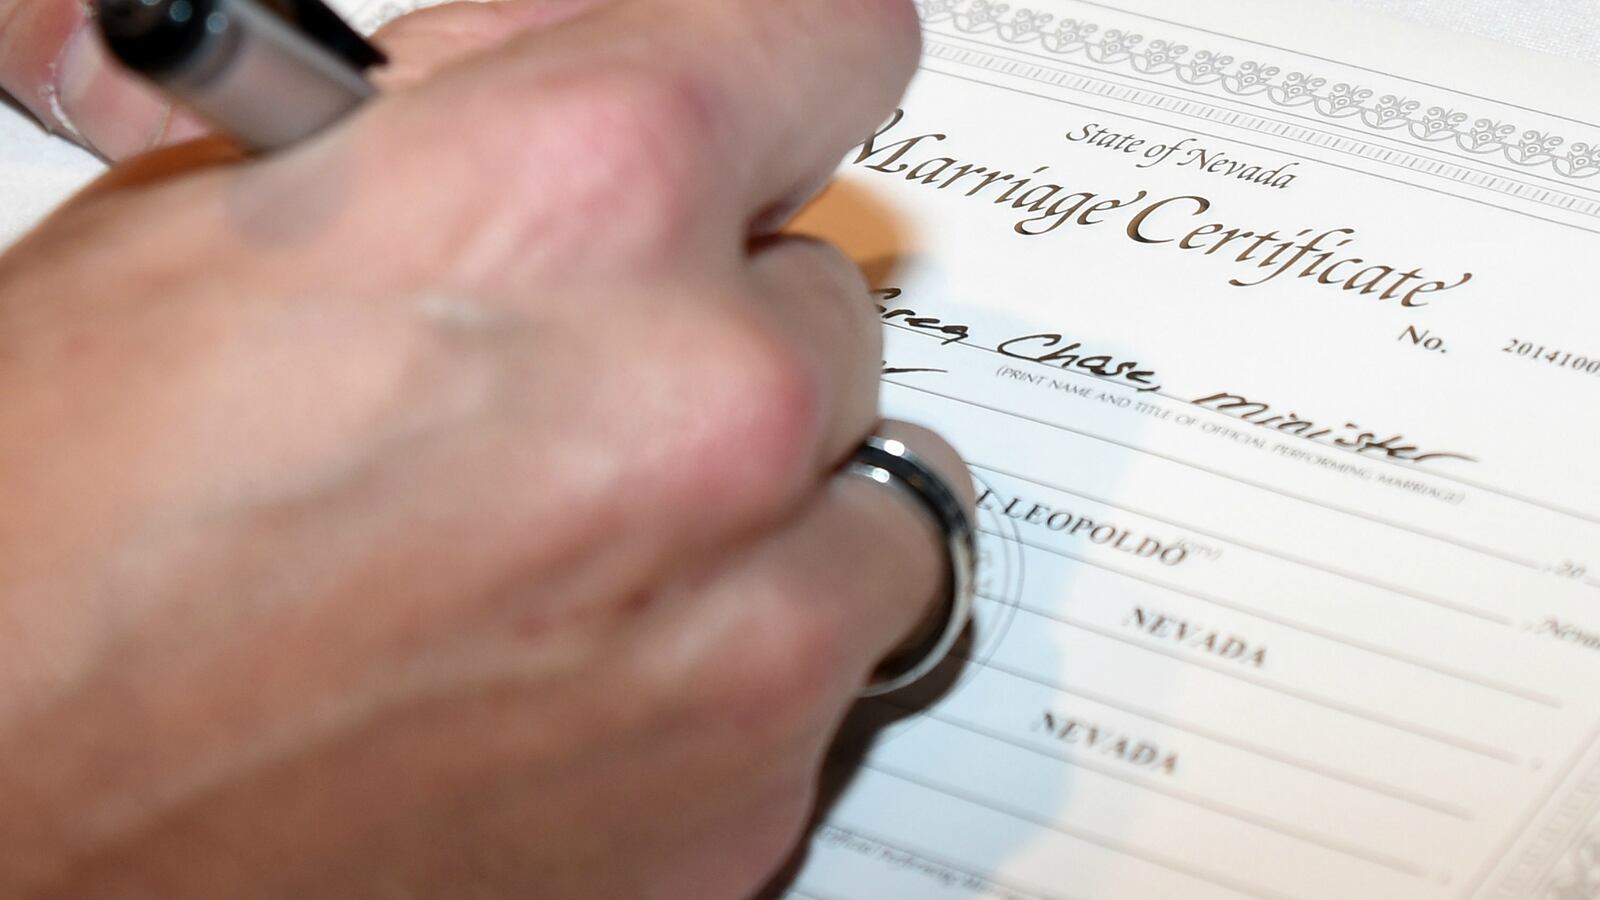 State of Nevada
Marriage Certificate
No. 2014100
Greg Chase, Minister
(PRINT NAME AND TITLE OF OFFICIAL PERFORMING MARRIAGE)
L LEOPOLDO
(CITY)
, 20
NEVADA
, Nevada
NEVADA